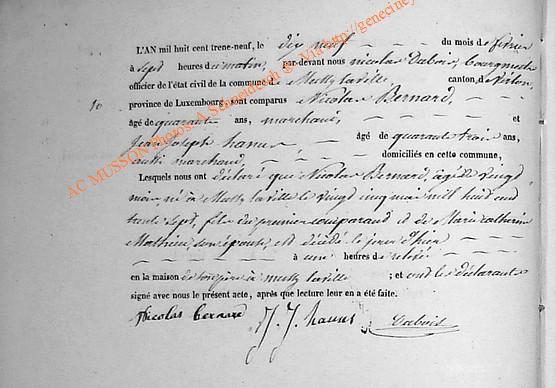 L'AN mil huit cent trene-neuf, le dix neuf du mois de février
à sept heures du matin, par-devant nous nicolas Dubois, bourgmestre
officier de l'état civil de la commune de Mussy la ville, canton, de Virton,
10 province de Luxembourg, sont comparus Nicolas Bernard,
âgé de quarante ans, marchand, et
Jean Joseph hanus âgé de quarante trois ans,
aussi marchand, domiciliés en cette commune,
Lesquels nous ont déclaré que Nicolas Bernard, âgé de vingt
mois, né à Mussy la ville le vingt cinq mai mil huit cent
trente sept, fils du premier comparant et de Marie catherine
Mathieu son épouse, est décédé le jour d'hier
à une heures de relevé
en la maison de son père à mussy laville ; et ont les déclarants
signé avec nous le présent acte, après que lecture leur en a été faite.
Nicolas bernard J. J. hanus Dubois
AC MUSSON Photos: A. Schneiderch @ Via http://geneciney